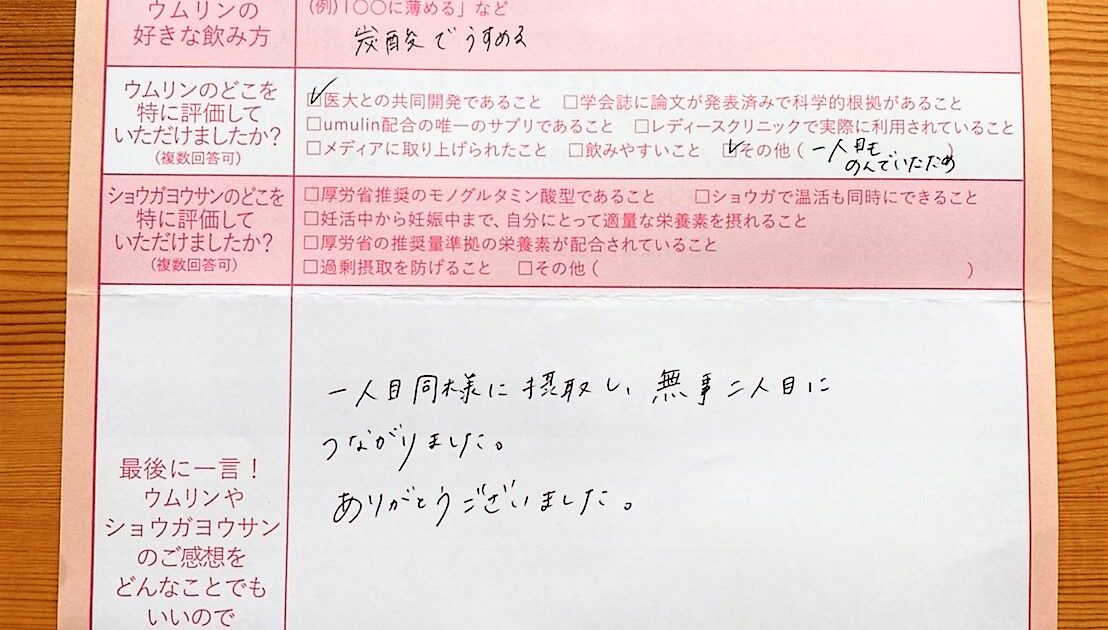 ウムリンの
好きな飲み方
(例)「○○に薄める」など
炭酸でうすめる
ウムリンのどこを
特に評価して
いただけましたか?
(複数回答可)
☑医大との共同開発であること □学会誌に論文が発表済みで科学的根拠があること
□umulin配合の唯一のサプリであること □レディースクリニックで実際に利用されていること
□メディアに取り上げられたこと □飲みやすいこと ☑その他(一人目も
のんでいたため)
ショウガヨウサンのどこを
特に評価して
いただけましたか?
(複数回答可)
□厚労省推奨のモノグルタミン酸型であること □ショウガで温活も同時にできること
□妊活中から妊娠中まで、自分にとって適量な栄養素を摂れること
□厚労省の推奨量準拠の栄養素が配合されていること
□過剰摂取を防げること □その他( )
最後に一言!
ウムリンや
ショウガヨウサン
のご感想を
どんなことでも
いいので
一人目同様に摂取し、無事二人目に
つながりました。
ありがとうございました。